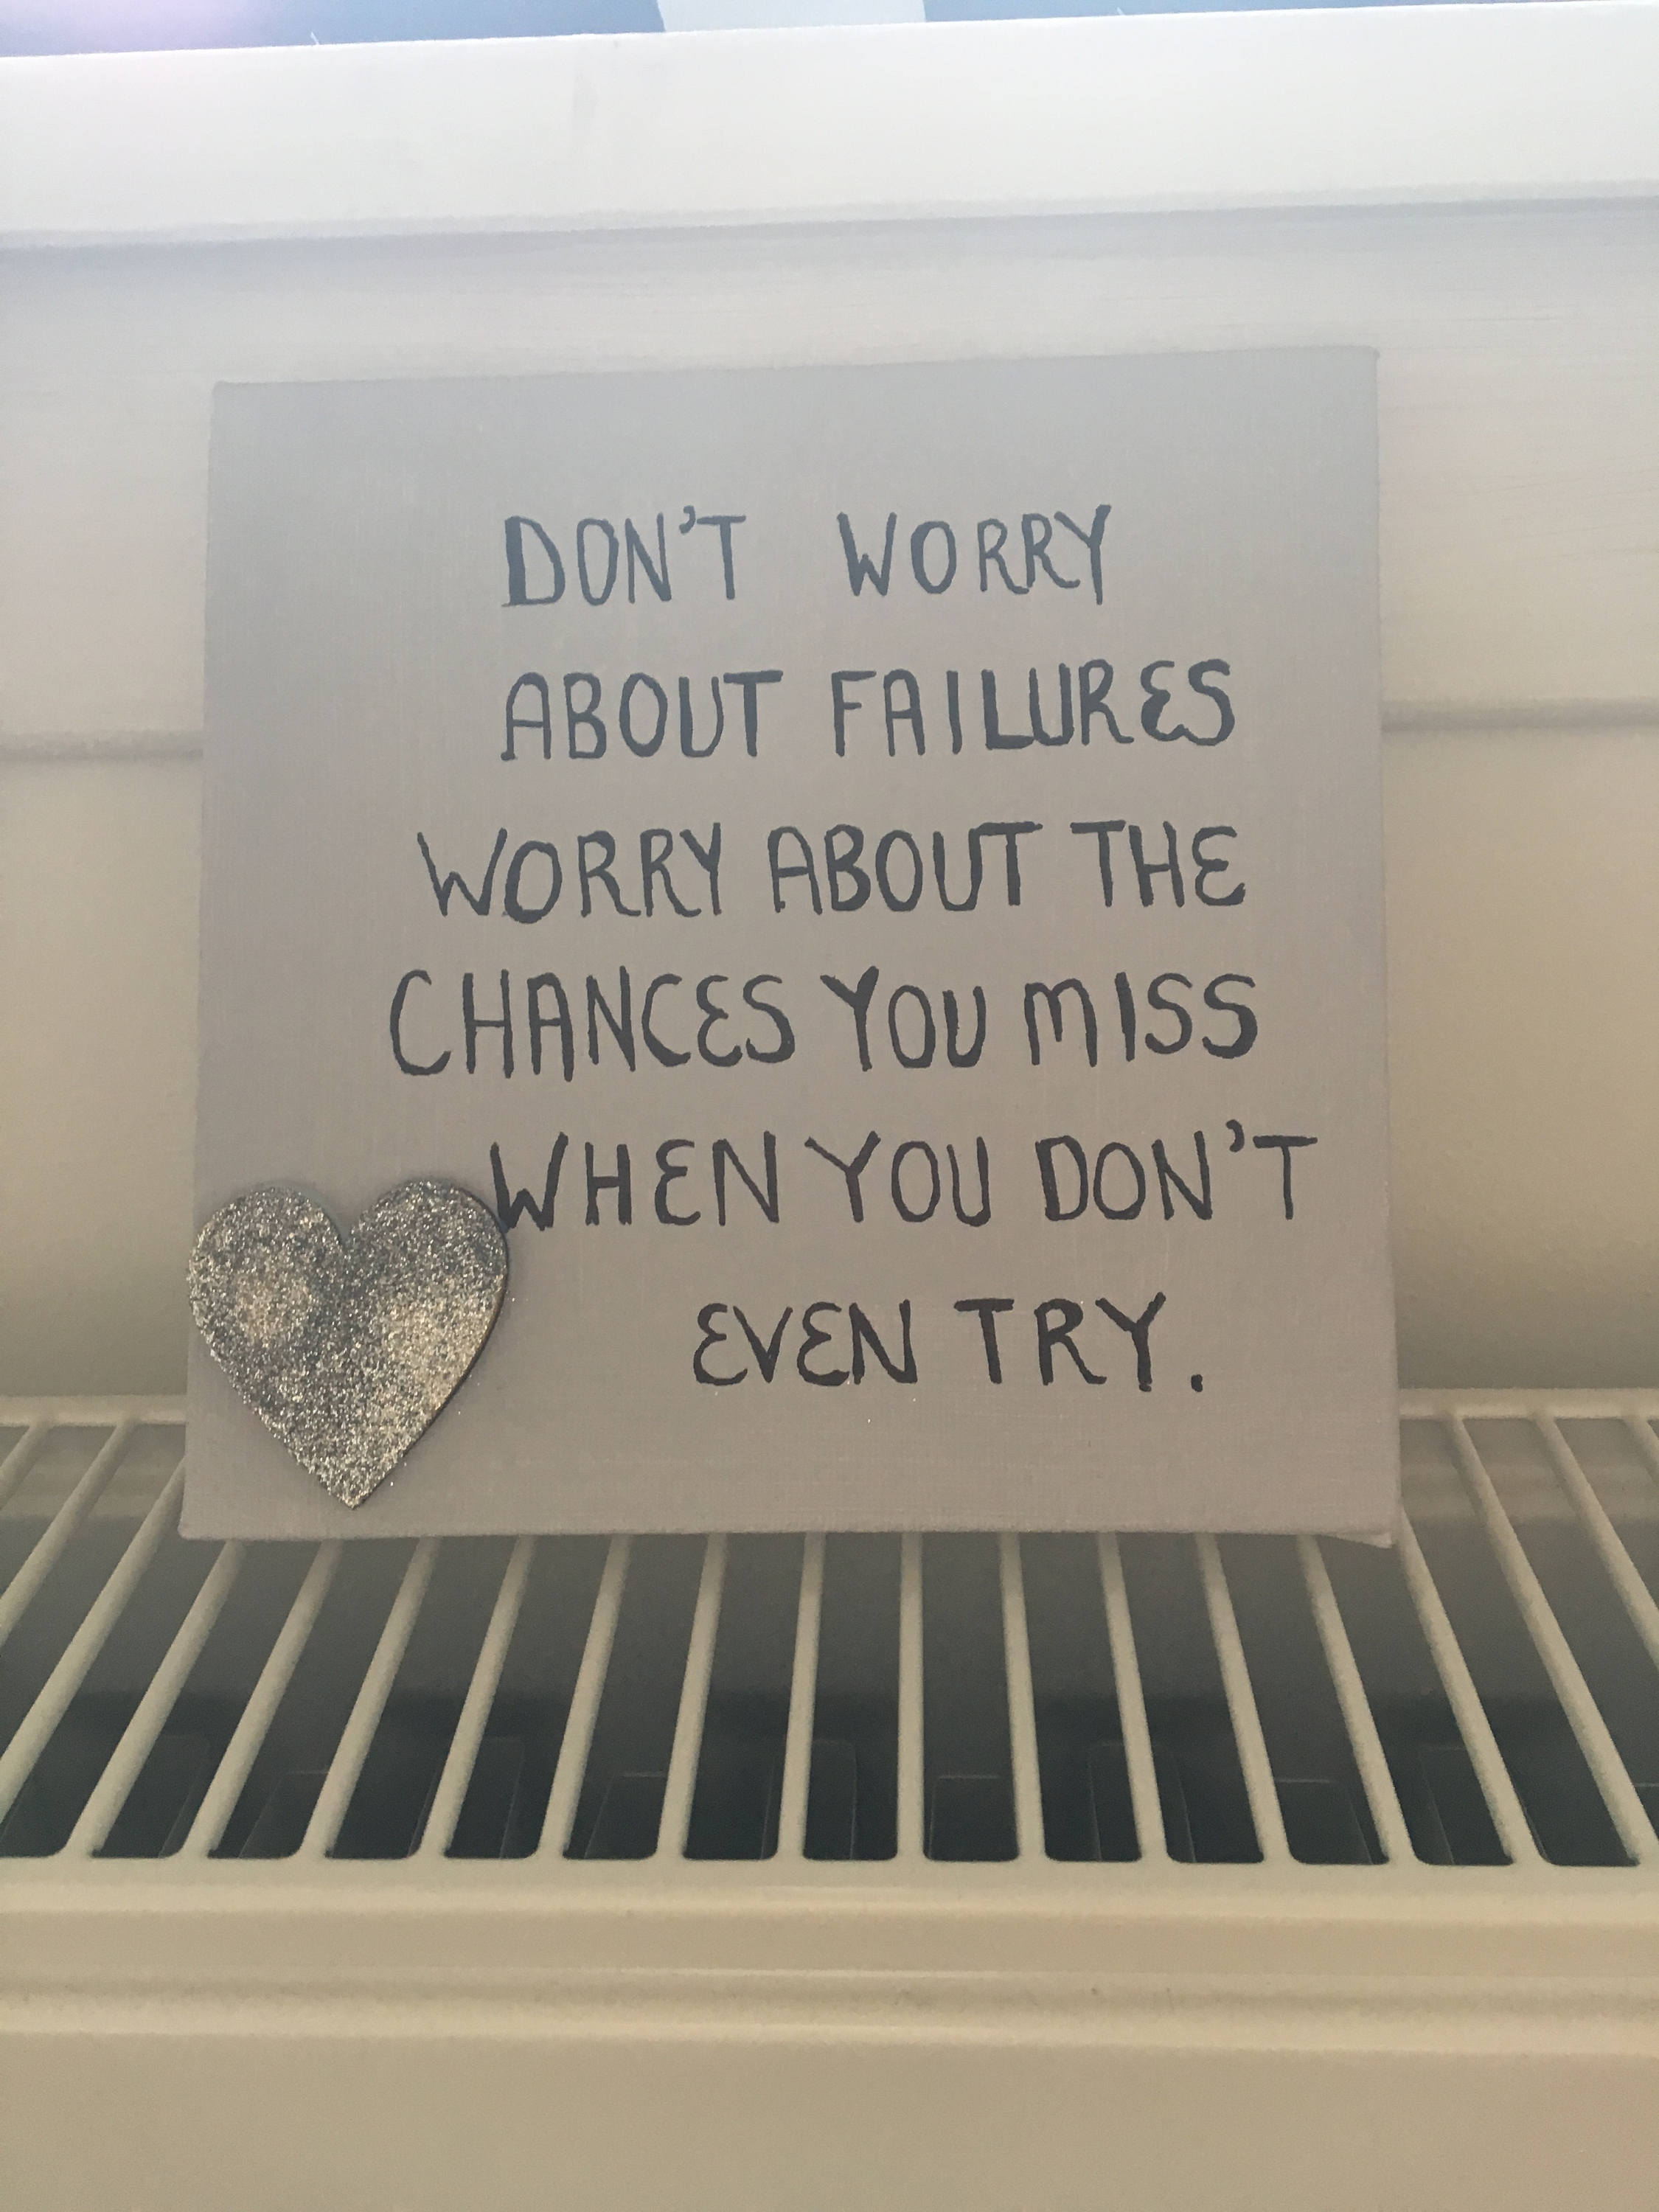 DON'T WORRY
ABOUT FAILURES
WORRY ABOUT THE
CHANCES YOU MISS
WHEN YOU DON'T
EVEN TRY.